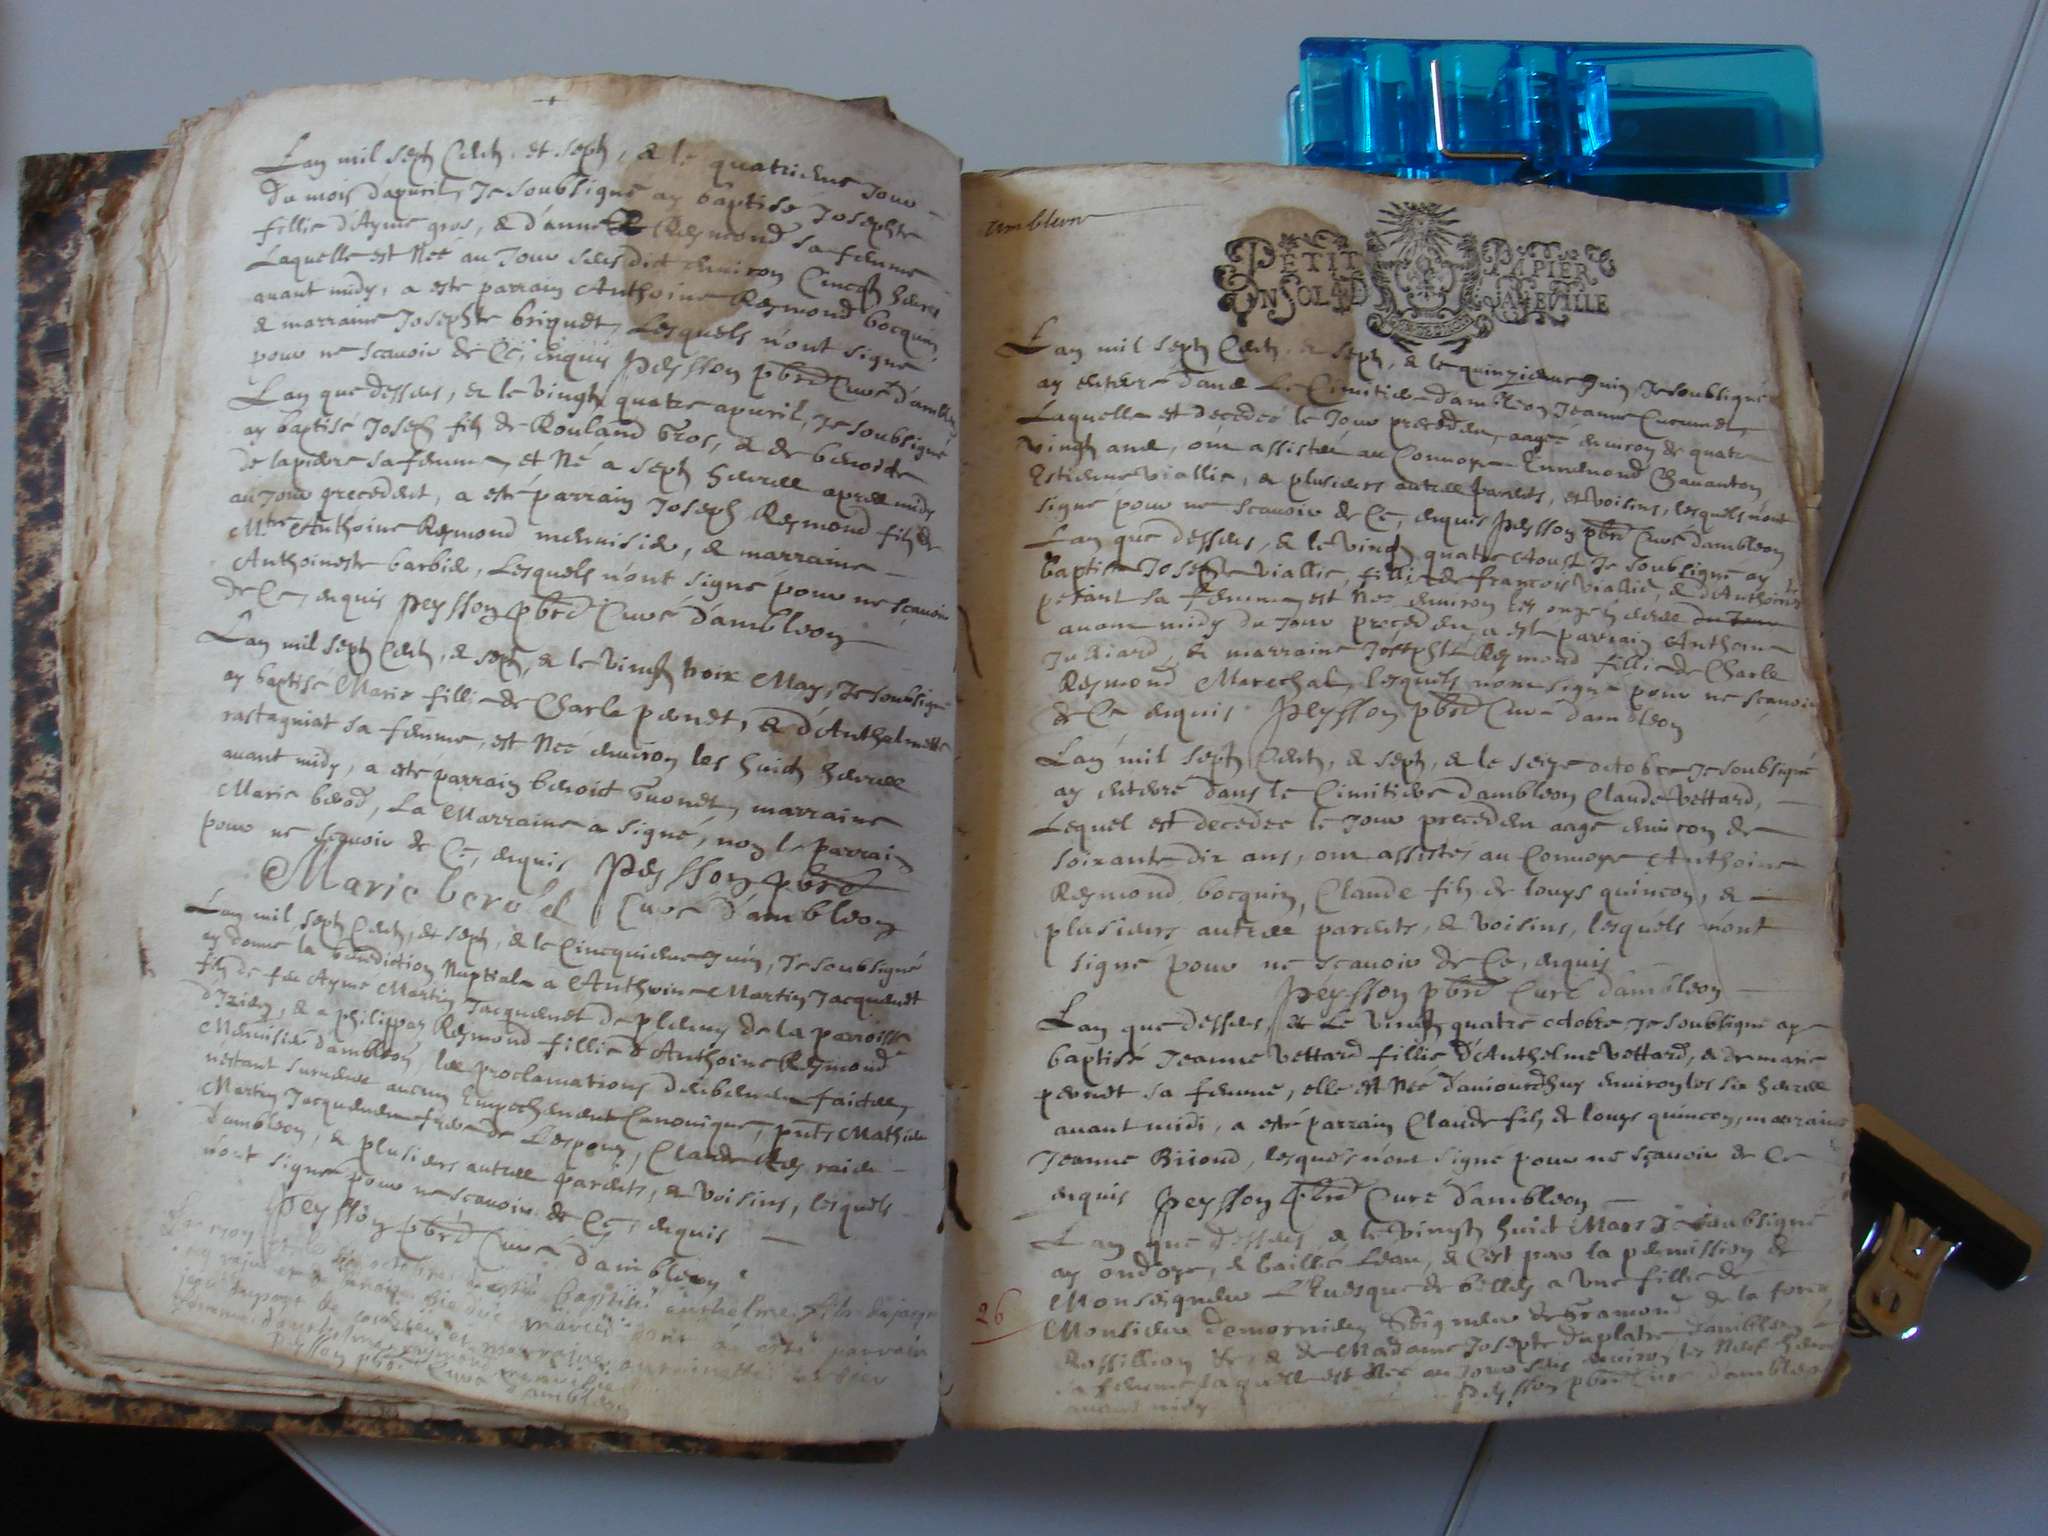 Lan mil sept Cent et sept, & le quatrieme Jour
du mois dapvril, Je soubsigné ay baptisé Josephte
fillie dAymé gros, & d'anne Reymond sa femme
Laquelle est Neé au Jour susdict environ Cincq heures
avant midy, a esté parrain Anthoine Reymond bocquin
& marraine Josephte briguet, Lesquels n'ont signé
pour ne scavoir de Ce, enquis Peysson pbre Curé d'ambleon
Lan que dessus, & le vingt quatre apvril, Je soubsigné
ay baptisé Joseph fils de Rouland Gros, & de benoite
De lapierre sa femme, et Né a sept heures apres midy
au Jour precedent, a esté parrain Joseph Reymond fils de
Mtre Anthoine Reymond menuisier, & marraine
Anthoinette barbier, Lesquels n'ont signe pour ne scavoir
de Ce, enquis Peysson pbre Curé d'ambleon
Lan mil sept Cent, & sept, & le vingt trois May, Je soubsigné
ay baptisé Marie fillie de Charle penet, & d'Anthelmette
rastagniat sa femme, est Neé environ les huict heures
avant midy, a esté parrain benoict Guonet, marraine
Marie berod, La Marraine a signé, non le parrain
pour ne scavoir de Ce, enquis Peysson pbre
Marie berod Curé d'ambleon
Lan mil sept Cent, et sept, & le Cincquieme Juin, Je soubsigné
ay donne la benediction Nuptiale a Anthoine Martin Jacquenet
fils de feu Aymé Martin Jacquenet de de la parroisse
d'Izieu, & a philippaz Reymond fillie d'Anthoine Reymond
Menuisier dambleon, les proclamations deubement faictes,
n'estant survenu aucun Empechement Canonique, pnts Mathieu
Martin Jacquenet frere de Lespoux, Claude
dambleon, & plusieurs autres parents, & voisins, lesquels
n'ont signé pour ne scavoir de Ce, enquis
Peysson pbre Curé d'ambleon
octobre a esté baptisé anthelme fils de
parrain
marraine anthoinette barbier
Peysson pbre Curé dambleon
ambleon
PETIT PAPIER
UN SOL LA FEVILLE
Lan mil sept Cent, & sept, & le quinzieme Juin, Je soubsigné
ay enterré dans Le Cimitiere dambleon Jeanne
Laquelle est decedeé le Jour precedent, aageé environ de quatre
vingt ans, ont assisté au Convoye Ennemond Chavanton,
Estienne viallie, & plusieurs autres parents, et voisins, lesquels n'ont
signé pour ne scavoir de Ce, enquis Peysson pbre Curé dambleon
Lan que dessus, & le vingt quatre Aoust Je soubsigné ay
baptisé Josephte viallie, fillie de francois viallie, & d'Anthoinette
petant sa femme, est Neé environ les onze heures du Jour
avant midy du Jour precedent, a esté parrain Anthelme
Julliard, & marraine Josephte Reymond fillie de Charle
Reymond Marechal, lesquels n'ont signé pour ne scavoir
de Ce enquis Peysson pbre Curé dambleon
Lan mil sept Cent, & sept, & le seize octobre Je soubsigné
ay enterré dans le Cimitiere dambleon Claude Vettard,
Lequel est decedeé le Jour precedent aagé environ de
soixante dix ans, ont assistés au Convoye Anthoine
Reymond bocquin, Claude fils de louys quincon, &
plusieurs autres parents, & voisins, lesquels n'ont
signé pour ne sçavoir de Ce, enquis
Peysson pbre Curé dambleon
Lan que dessus, & Le vingt quatre octobre Je soubsigné ay
baptisé Jeanne Vettard fillie d'Anthelme Vettard, & de marie
penet sa femme, elle est Neé d'aujourdhuy environ les six heures
avant midi, a esté parrain Claude fils de louys quincon, marraine
Jeanne Biiond, lesquels n'ont signé pour ne sçavoir de Ce
enquis Peysson pbre Curé d'ambleon
Lan que dessus, & le vingt huict Mars Je soubsigné
ay ondoye, & baillé Leau, & C'est par la permission de
Monseigneur L'Evesque de belley a une fillie de
26
Monsieur demornieu Seigneur de Gramond de la
Rossillion &c, & de Madame Josepte duplatre dambleon
sa femme laquelle est Neé au Jour susd environ les Neuf heures
avant midy Peysson pbre Curé dambleon